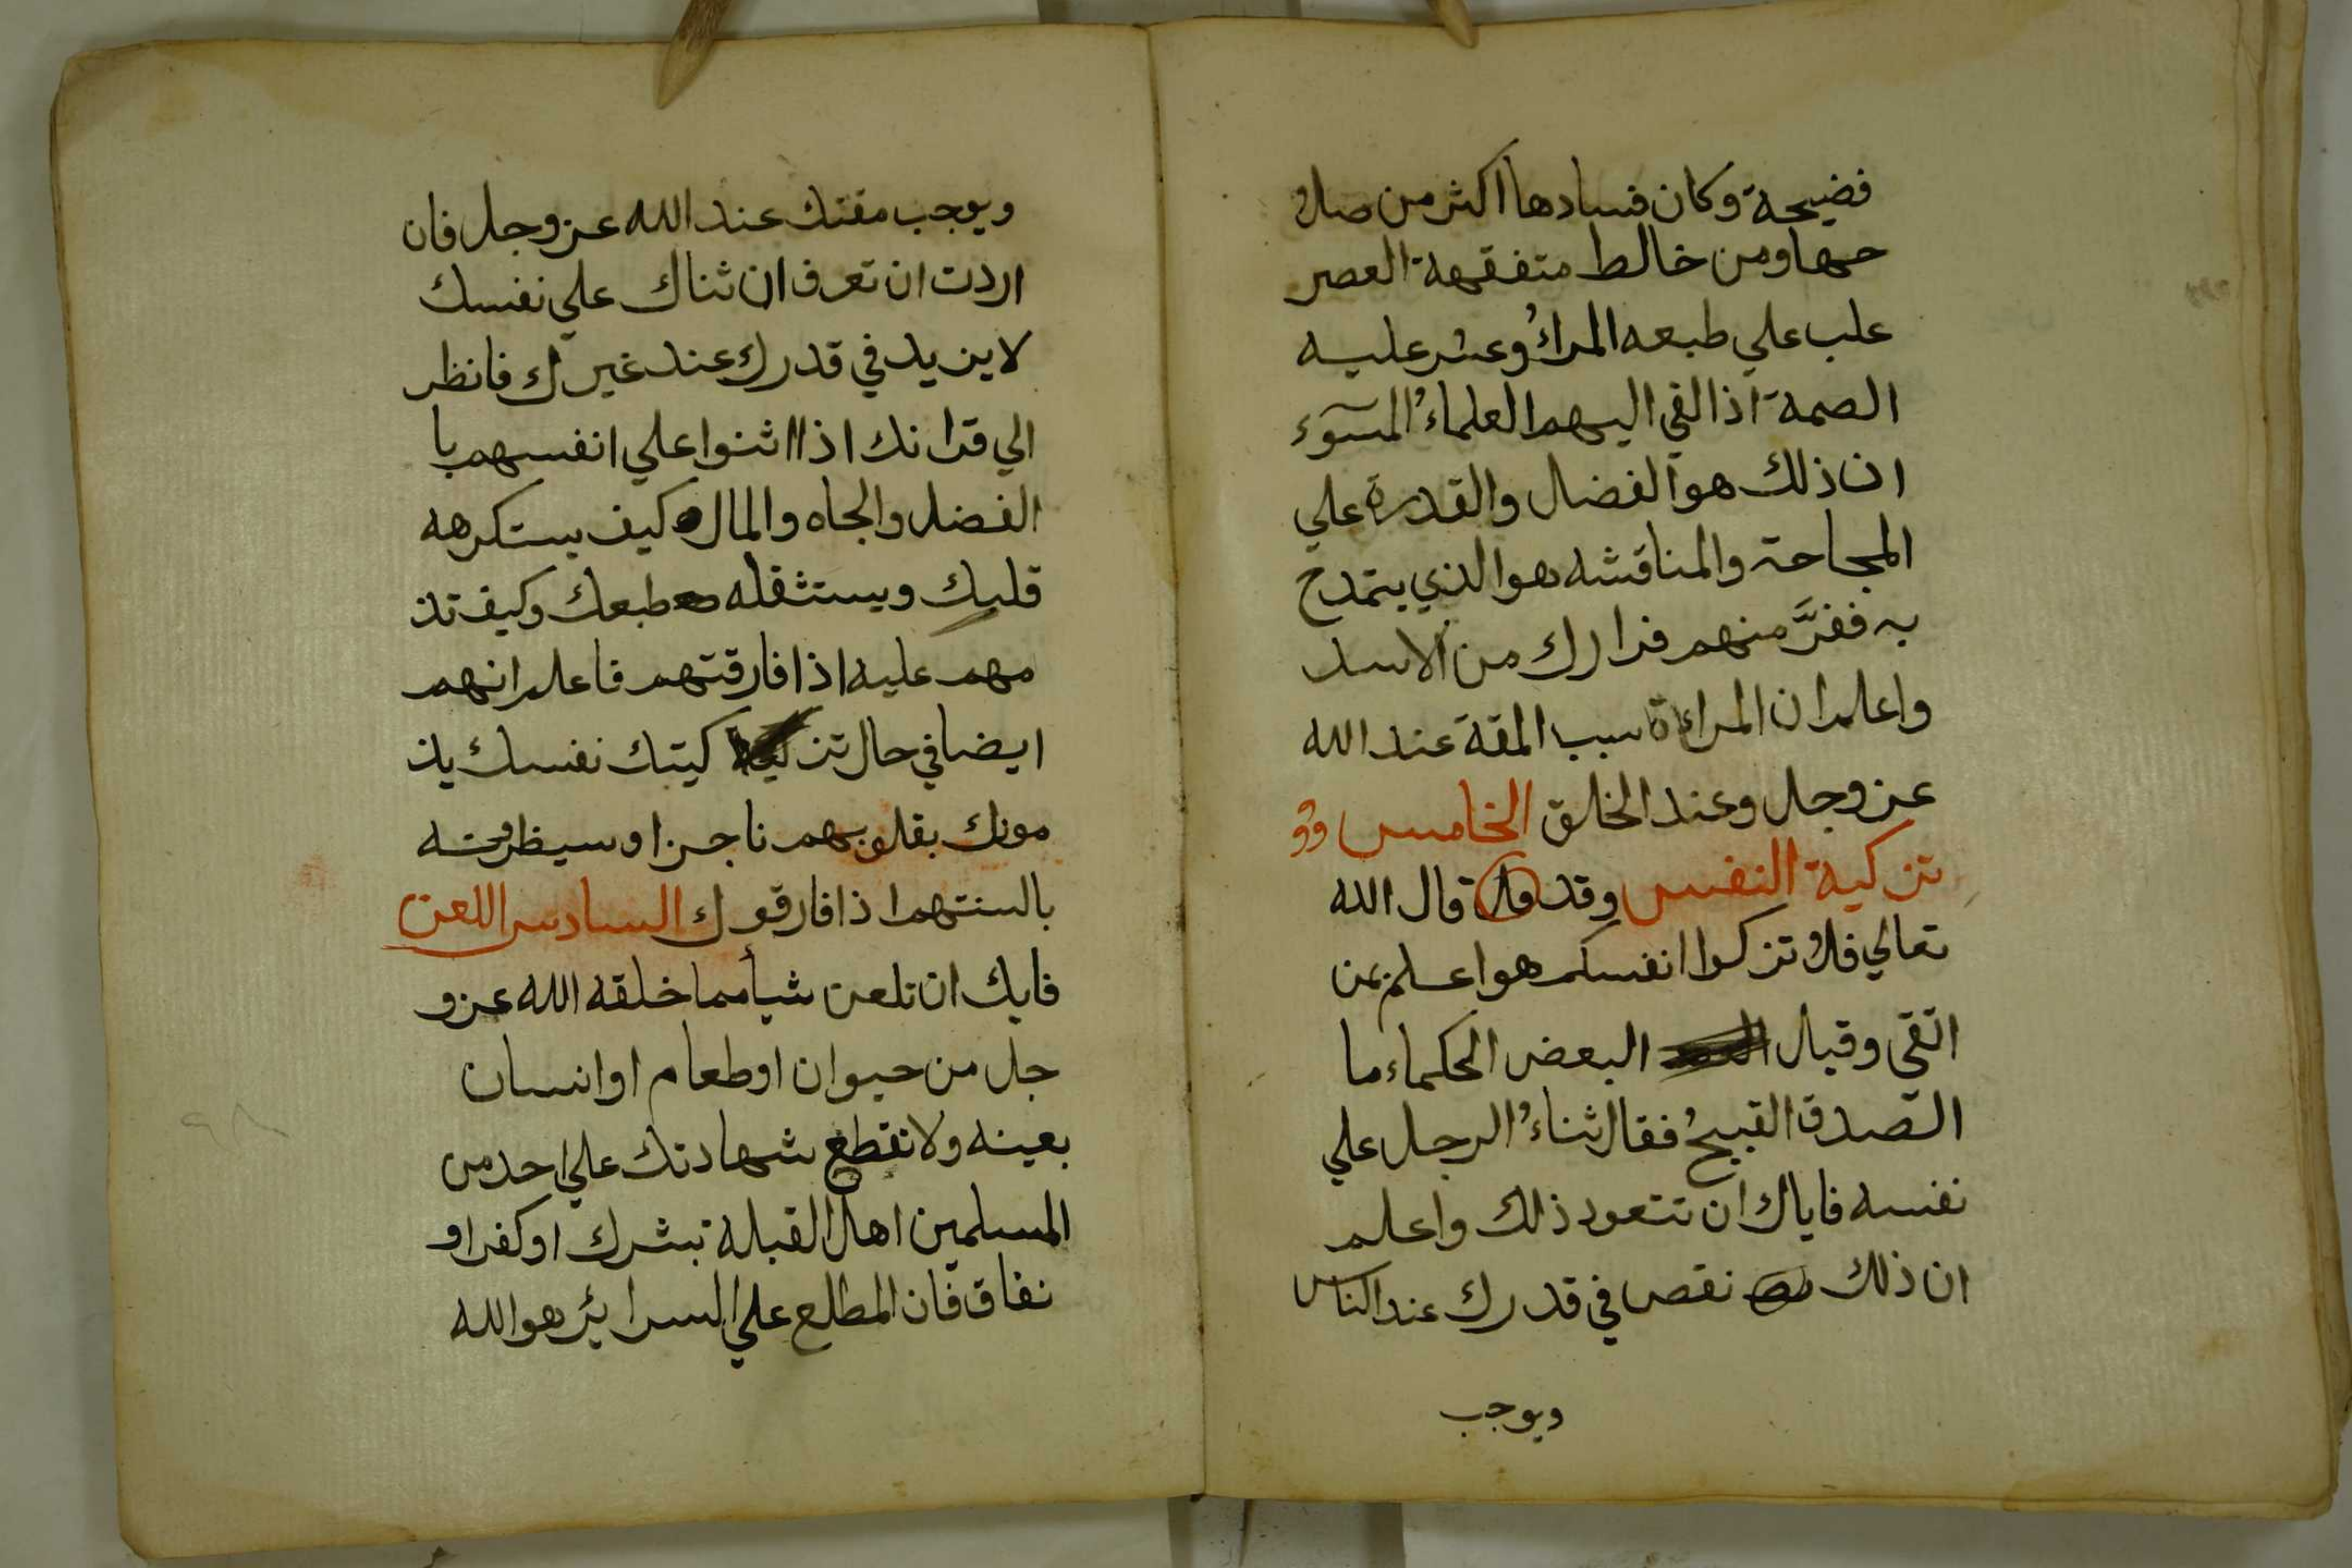 فضيحة وكان فسادها اكثر من صلا
حها ومن خالط متفقهة العصر
علب علي طبعه المراءُ وعسر عليه
الصمة اذا القي اليهم العلماءُ السوء
ان ذلك هو الفضال والقدرة علي
المجاحة والمناقشه هو الذي يتمدح
به ففرَّ منهم فرارك من الاسد
واعلم ان المراءة سبب المقة عند الله
عز وجل وعند الخلق الخامس
تزكية النفس وقد قال الله
تعالي فلا تزكوا انفسكم هو اعلم بمن
اتقى وقيال البعض الحكماء ما
الصدق القبيحُ فقال ثناءُ الرجل علي
نفسه فاياك ان تتعود ذلك واعلم
ان ذلك نقص في قدرك عند الناس
ويوجب
ويوجب مقتك عند الله عز وجل فان
اردت ان تعرف ان ثناك علي نفسك
لا يزيد في قدرك عند غيرك فانظر
الي قرانك اذا اثنوا علي انفسهم با
الفضل والجاه والمال كيف يستكرهه
قلبك ويستثقله طبعك وكيف تذ
مهم عليه اذا فارقتهم فاعلم انهم
ايضا في حال تز كيتك نفسك يذ
مونك بقلوبهم ناجزا وسيظرونه
بالسنتهم اذا فارقوك السادس اللعن
فايك ان تلعن شيأ مما خلقه الله عز و
جل من حيوان او طعام او انسان
بعينه ولا تقطع شهادتك علي احد من
المسلمين اهل القبلة بشرك او كفر او
نفاق فان المطلع علي السرايئر هو الله